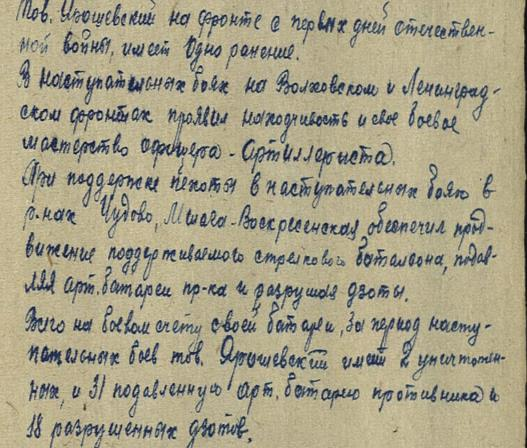 Тов. Ярошевский на фронте с первых дней отечествен-
ной войны, имеет одно ранение.
В наступательных боях на Волховском и Ленинград-
ском фронтах проявил находчивость и свое боевое
мастерство офицера-артиллериста.
При поддержке пехоты в наступательных боях в
р-нах Чудово, Мшага-Воскресенская, обеспечил прод-
вижение поддерживаемого стрелкового баталеона, подав-
ляя арт. батареи пр-ка и разрушая дзоты.
Всего на боевом счету своей батареи, за период насту-
пательных боев тов. Ярошевский имеет 2 уничтожен-
ных, и 31 подавленную арт. батарею противника и
18 разрушенных дзотов.